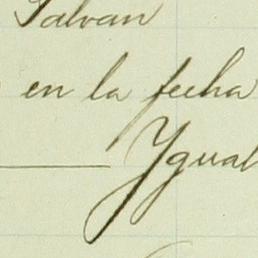 Galvan
en la fecha
Ygual